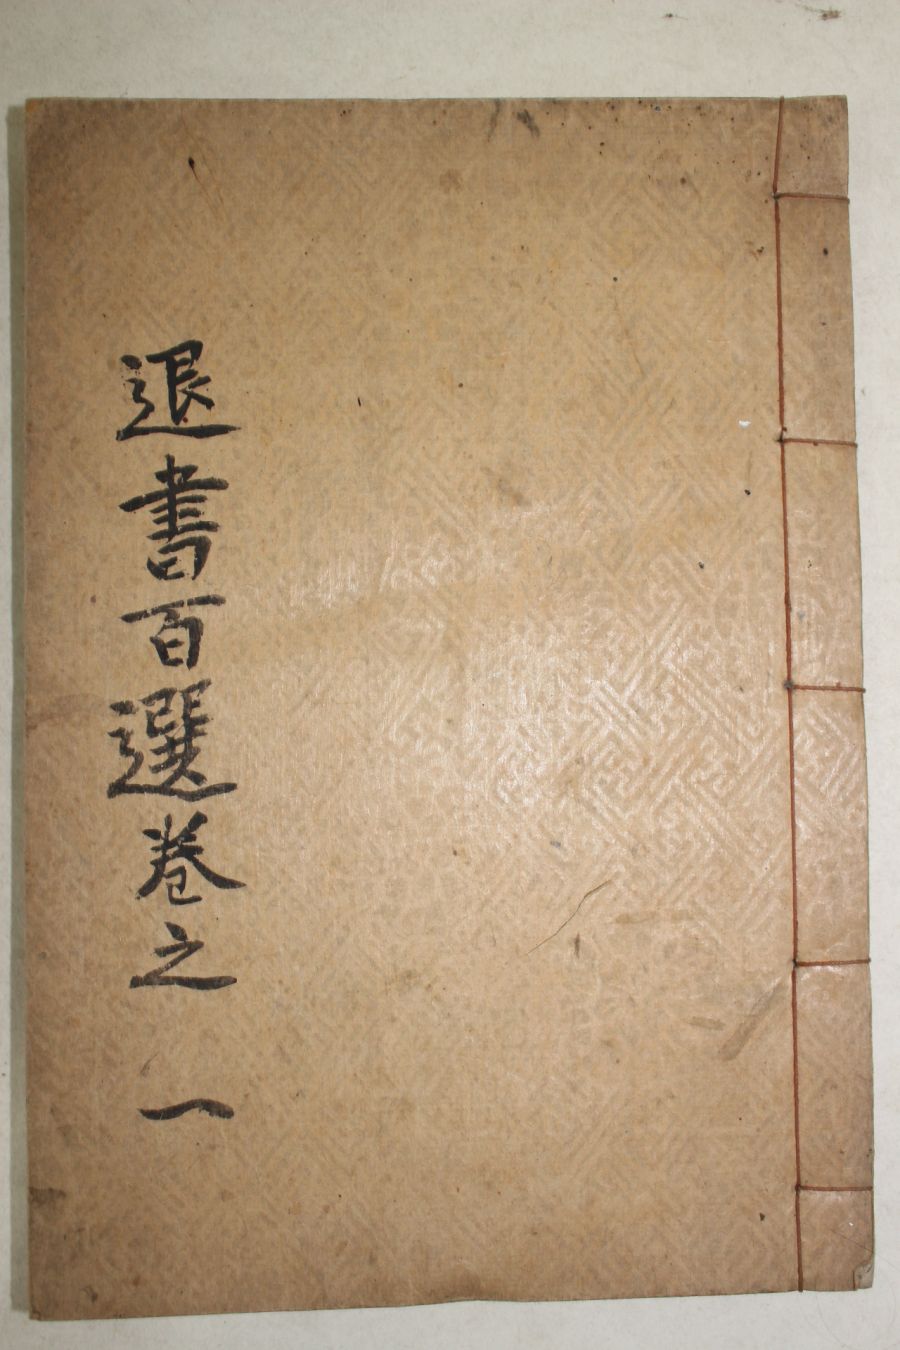 退書百選卷之一